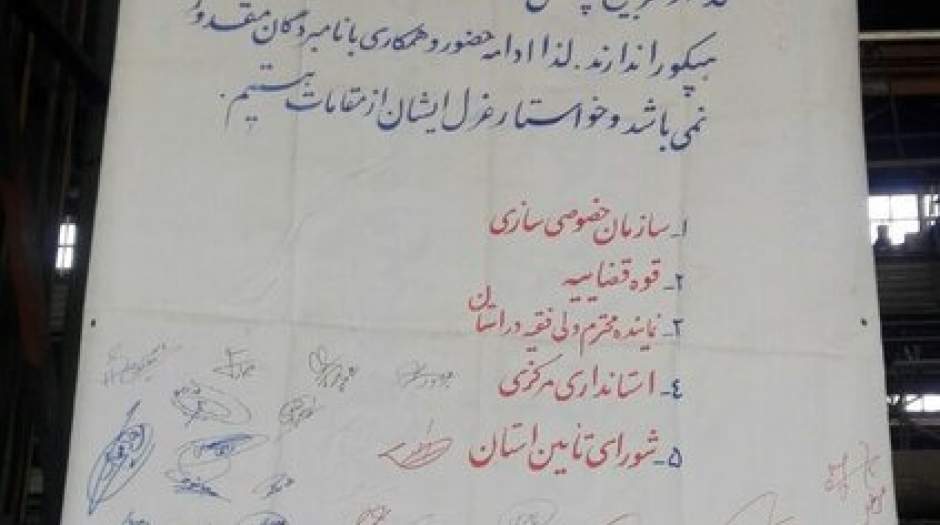 هپکو را ندارند. لذا ادامه حضور و همکاری با نامبردگان مقدور
نمی باشد و خواستار عزل ایشان از مقامات هستیم.
۱- سازمان خصوصی سازی
۲- قوه قضاییه
۳- نماینده محترم ولی فقیه در استان
۴- استانداری مرکزی
۵- شورای تامین استان